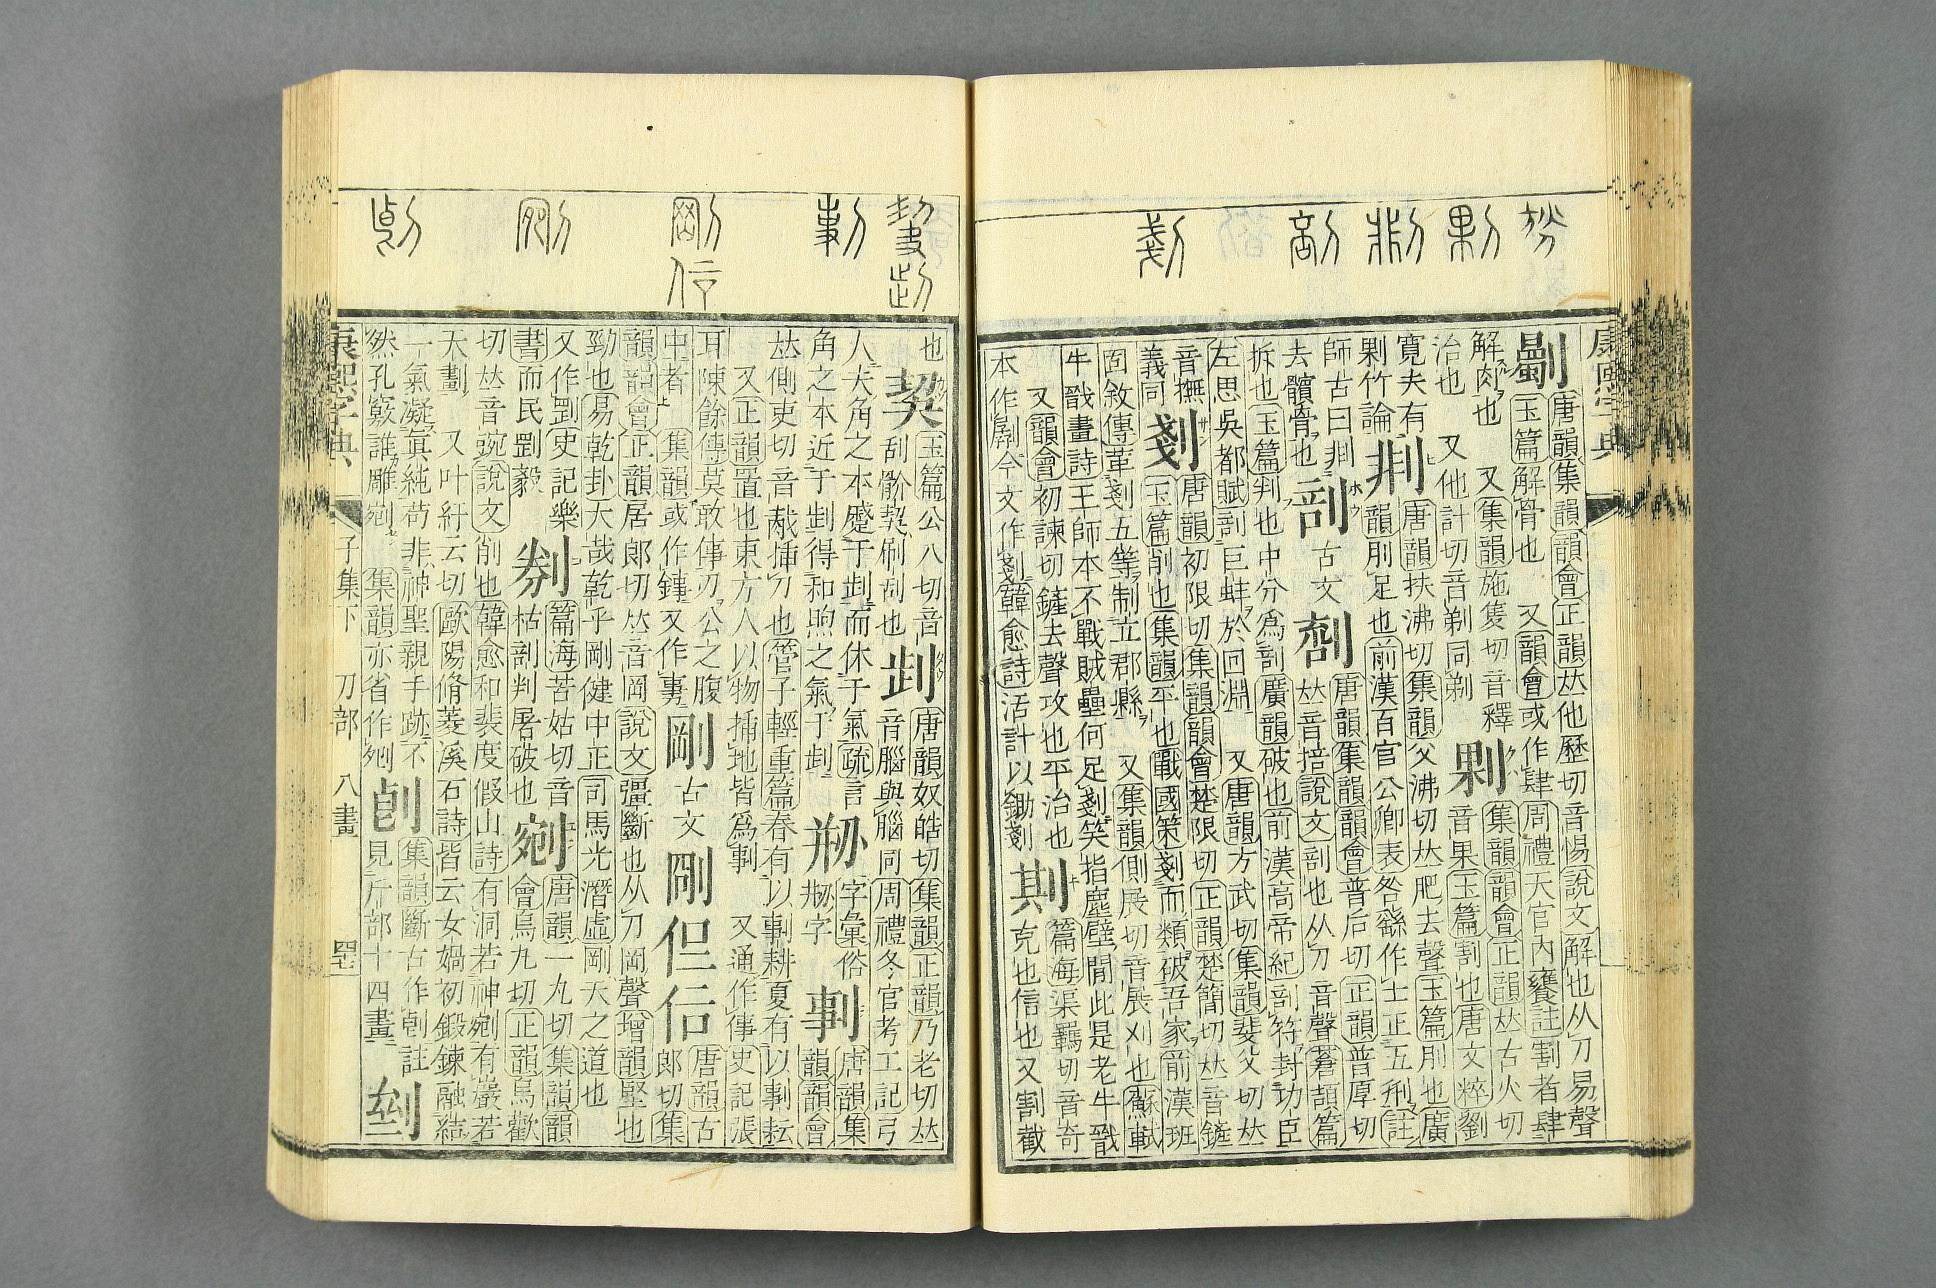 康熙字典
剔唐韻集韻韻會正韻𠀤他歷切音惕說文解也从刀易聲
玉篇解骨也 又韻會或作肆周禮天官內饔註割者肆
解肉也 又集韻施隻切音釋
治也 又他計切音剃同剃
剰音果玉篇割也唐文粹劉
集韻韻會正韻𠀤古火切
寬夫有剰竹論
剕唐韻扶沸切集韻父沸切𠀤肥去聲玉篇刖也廣
韻刖足也前漢百官公卿表咎繇作士正五刑註
師古曰剕
去髕骨也
剖古文𠜱
唐韻集韻韻會普后切正韻普厚切
𠀤音掊說文剖也从刀音聲蒼頡篇
拆也玉篇判也中分爲剖廣韻破也前漢高帝紀剖符封功臣
左思吳都賦剖巨蚌於回淵 又唐韻方武切集韻斐父切𠀤
音撫
義同
剗唐韻初限切集韻韻會楚限切正韻楚簡切𠀤音鏟
玉篇削也集韻平也戰國策剗而類破吾家前漢班
固敘傳革剗五等制立郡縣 又集韻側展切音展刈也蘇軾
牛戩畫詩王師本不戰賊壘何足剗笑指塵壁閒此是老牛戩
又韻會初諫切鏟去聲攻也平治也
本作㔍今文作剗韓愈詩活計以鋤剗
剘篇海渠羈切音奇
克也信也又割截
也
㓤玉篇公八切音
刮骱㓤刷刮也
唐韻奴皓切集韻正韻乃老切𠀤
音腦與腦同周禮冬官考工記弓
人夫角之本蹙于𠜶而休于氣疏言
角之本近于𠜶得和煦之氣于𠜶
字彙俗
字
剚唐韻集
韻韻會
𠀤側吏切音胾揷刀也管子輕重篇春有以剚耕夏有以剚耘
又正韻置也東方人以物揷地皆爲剚 又通作傳史記張
耳陳餘傳莫敢傳刃公之腹
中者 集韻或作鏄又作𠭥
剛古文
唐韻古
郎切集
韻韻會正韻居郎切𠀤音岡說文彊斷也从刀岡聲增韻堅也
勁也易乾卦大哉乾乎剛健中正司馬光潛虛剛天之道也
又作㓻史記樂
書而民㓻毅
剏篇海苦姑切音
枯剖判屠破也
剜唐韻一九切集韻韻
會烏九切正韻烏歡
切𠀤音豌說文削也韓愈和裴度假山詩有洞若神剜有巖若
天劃 又叶紆云切歐陽脩菱溪石詩皆云女媧初鍛鍊融結
一氣凝眞純苟非神聖親手跡不
然孔竅誰雕剜 集韻亦省作夗
集韻斷古作𠜢註
見斤部十四畫
康熙字典
子集下 刀部 八畫